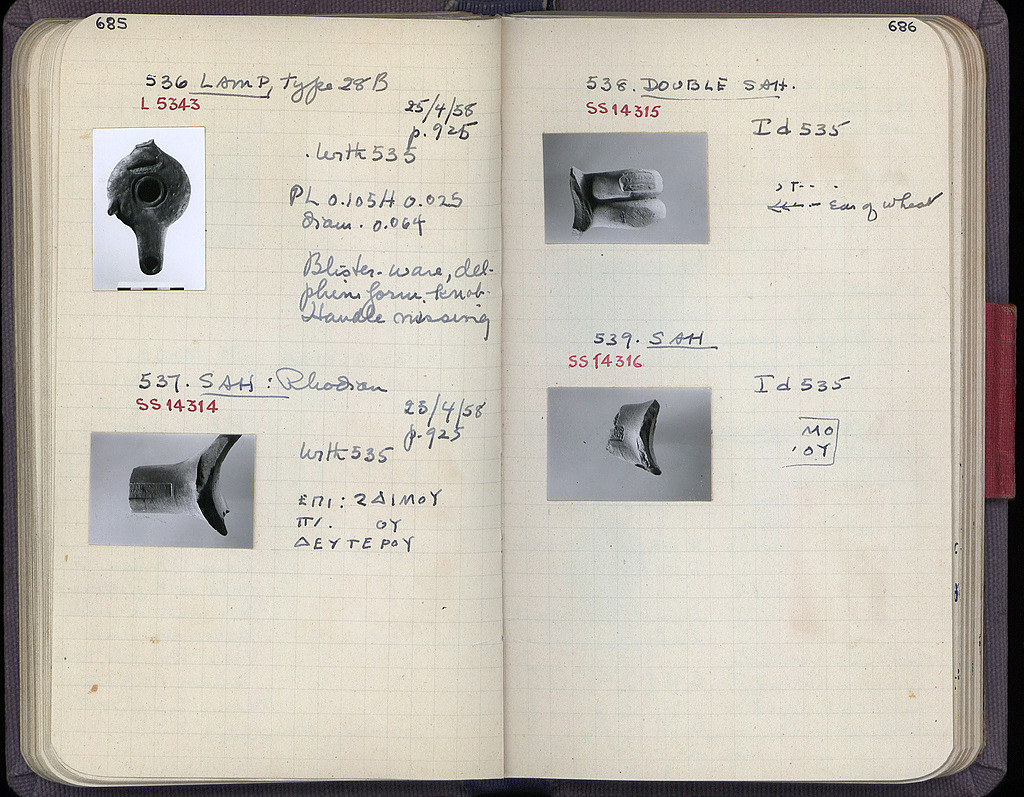 685
536 LAMP, Type 28B
L 5343
25/4/58
p. 925
With 535
PL 0.105 H 0.025
diam. 0.064
Blister-ware, del-
phini form knob.
Handle missing
537. SAH: Rhodian
SS 14314
23/4/58
p. 925
With 535
ΕΠΙ: ΔΙΜΟΥ
ΠΙ. ΟΥ
ΔΕΥΤΕΡΟΥ
686
538. DOUBLE SAH.
SS 14315
Id 535
Ear of wheat
539. SAH
SS 14316
Id 535
ΜΟ
ΟΥ